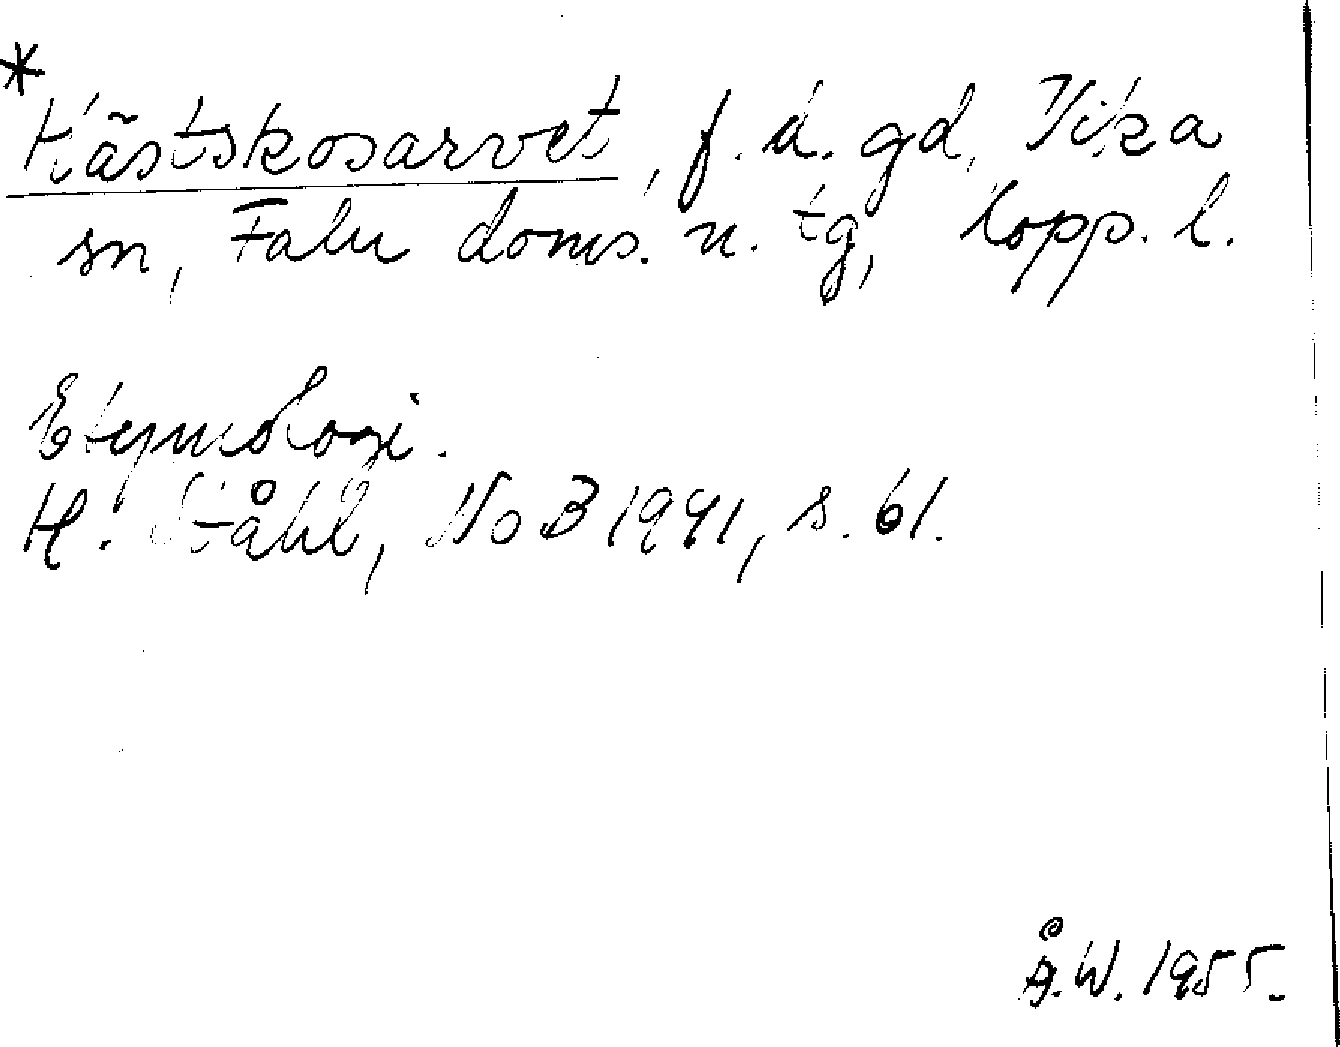 *
Kästskosarvet, f. d. gd, Vika
sn, Falu doms. n. tg, Kopp. l.
Etymologi.
H. Ståhl, NoB 1941, s. 61.
Å.W. 1955.